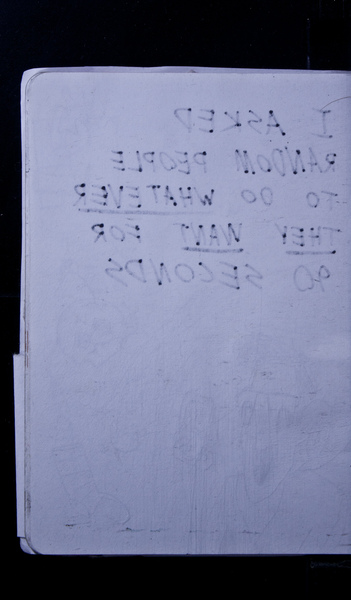 I ASKED
RANDOM PEOPLE
TO DO WHATEVER
THEY WANT FOR
90 SECONDS